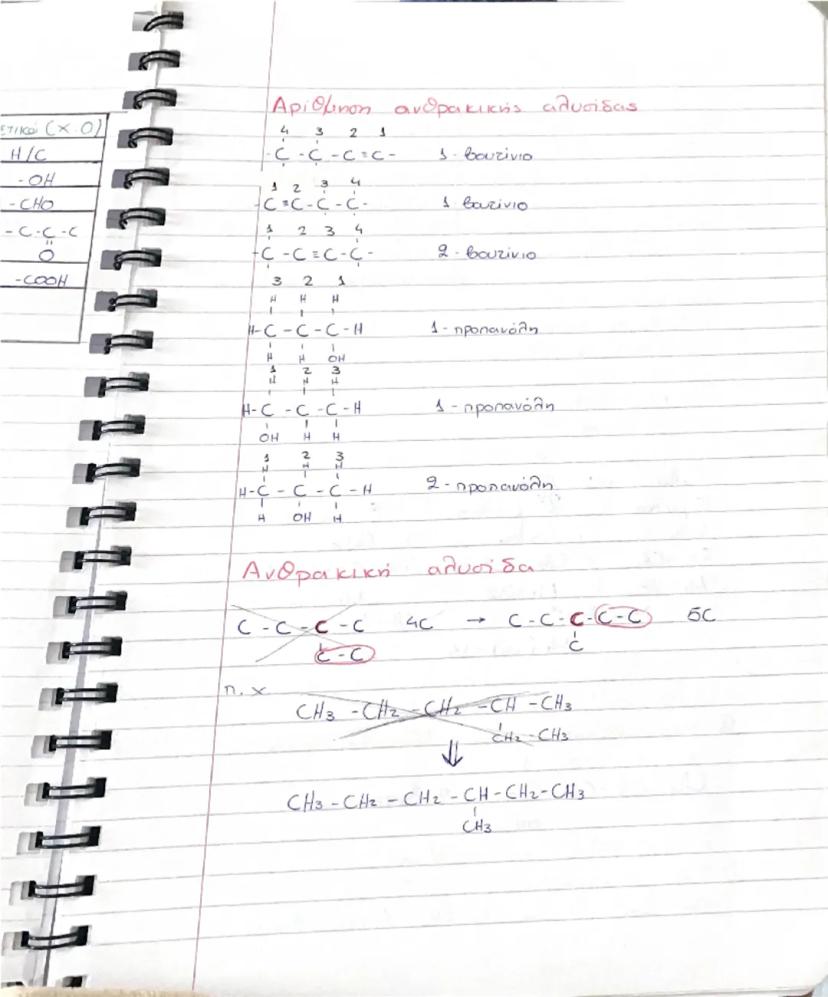 ετικοί (Χ.Ο)
Η/C
-OH
-CHO
-C-C-C
=
O
-COOH
Αρίθμηση ανθρακικής αλυσίδας
4 3 2 1
-C-C-C=C- 1-βουτίνιο
1 2 3 4
-C≡C-C-C- 1 βουτίνιο
1 2 3 4
-C-C≡C-C- 2-βουτίνιο
3 2 1
H H H
H-C-C-C-H 1-προπανόλη
H H OH
1 2 3
H H H
H-C-C-C-H 1-προπανόλη
OH H H
1 2 3
H H H
H-C-C-C-H 2-προπανόλη
H OH H
Ανθρακική αλυσίδα
C-C-C-C 4C → C-C-C-C-C 5C
C-C C
π.χ
CH3-CH2-CH2-CH-CH3
CH2-CH3
⇓
CH3-CH2-CH2-CH-CH2-CH3
CH3